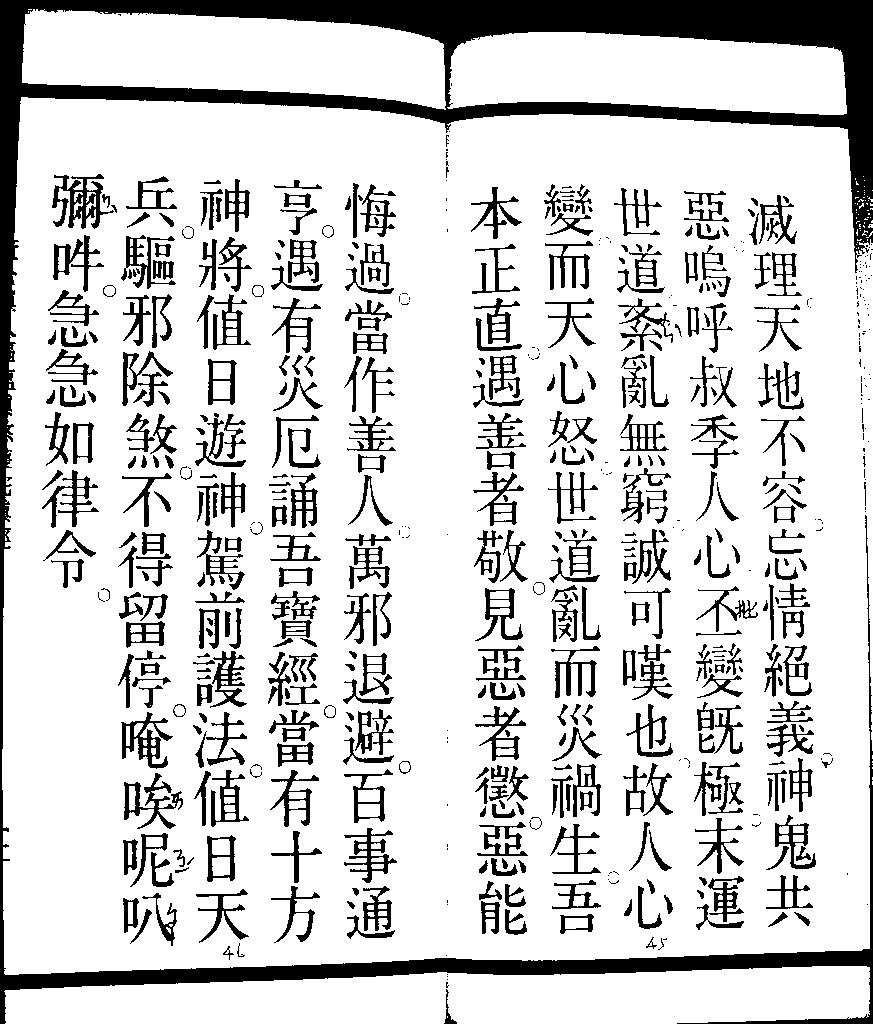 滅理天地不容忘情絕義神鬼共
惡嗚呼叔季人心丕變旣極末運
世道紊亂無窮誠可嘆也故人心
變而天心怒世道亂而災禍生吾
本正直遇善者敬見惡者懲惡能
悔過當作善人萬邪退避百事通
亨遇有災厄誦吾寶經當有十方
神將值日遊神駕前護法值日天
兵驅邪除煞不得留停唵唉呢叭
彌吽急急如律令
45
46